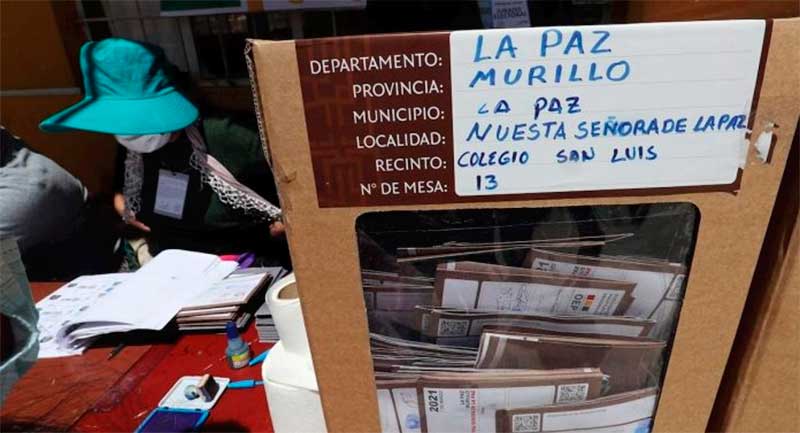 DEPARTAMENTO: LA PAZ
PROVINCIA: MURILLO
MUNICIPIO: LA PAZ
LOCALIDAD: NUESTA SEÑORA DE LA PAZ
RECINTO: COLEGIO SAN LUIS
N° DE MESA: 13
OEP
2021